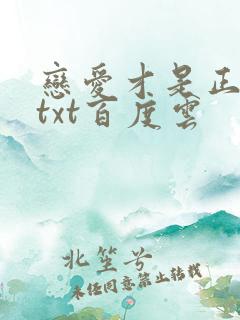 戀愛才是正
txt百度雲
北笙兮
未经同意禁止转载